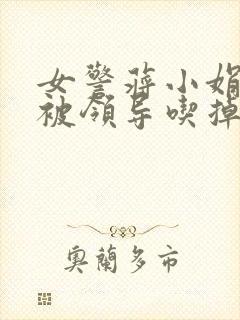 女警蒋小娟
被领导喫掉
奥兰多市